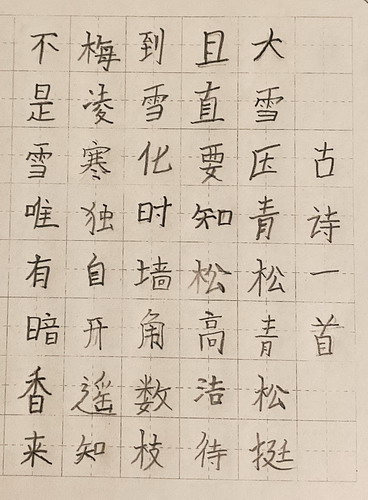 古诗一首
大雪压青松青松挺
且直要知松高洁待
到雪化时墙角数枝
梅凌寒独自开遥知
不是雪唯有暗香来